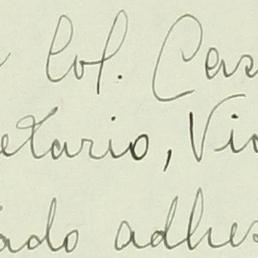 Col. Cas
etario, Vic
ado adhes